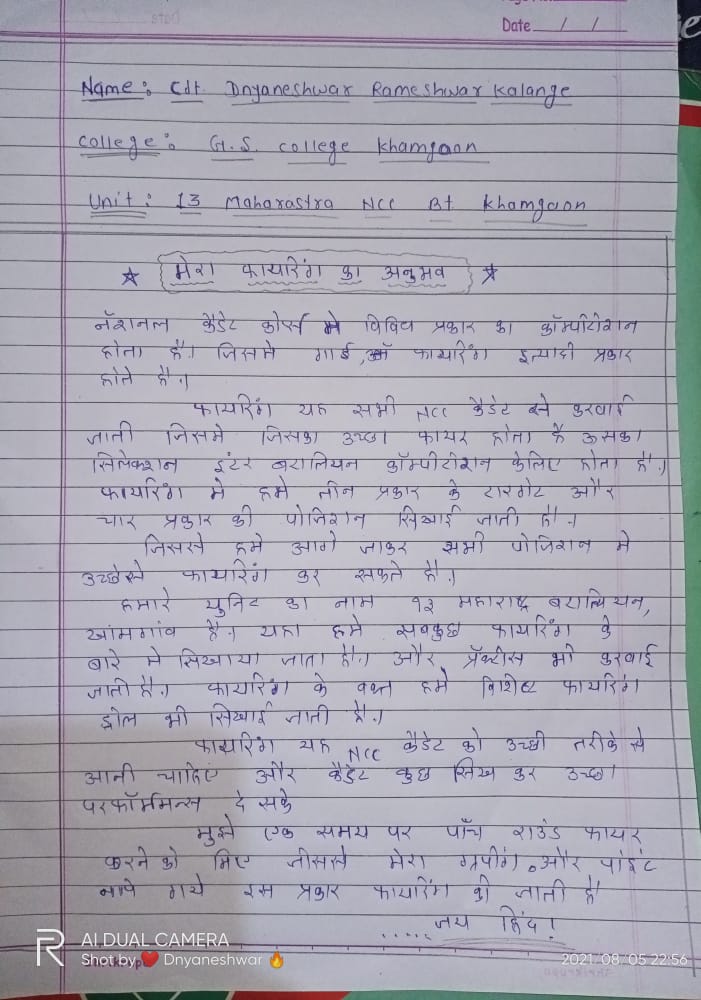 Date / /
Name: Cdt. Dnyaneshwar Rameshwar Kalange
College: G.S. college Khamgaon
Unit: 13 Maharastra NCC Bt Khamgaon
मेरा फायरिंग का अनुभव
नॅशनल कैडेट कोर्स मे विविध प्रकार का कॉम्पीटीशन
होता है। जिसमे गार्ड, फायरिंग इत्यादी प्रकार
होते है।
फायरिंग यह सभी NCC कैडेट से करवाई
जाती जिसमे जिसका उच्छा फायर होता है उसका
सिलेक्शन इंटर बटालियन कॉम्पीटीशन केलिए होता है।
फायरिंग मे हमे तीन प्रकार के टारगेट और
चार प्रकार की पोजिशन सिखाई जाती है।
जिससे हमे आगे जाकर सभी पोजिशन मे
उच्छेसे फायरिंग कर सकते है।
हमारे युनिट का नाम १३ महाराष्ट्र बटालियन,
खामगांव है। यहा हमे सबकुछ फायरिंग के
बारे मे सिखाया जाता है। और प्रॅक्टीस भी करवाई
जाती है। फायरिंग के वक्त हमे विशिष्ट फायरिंग
ड्रील भी सिखाई जाती है।
फायरिंग यह NCC कैडेट को उच्छी तरीके से
आनी चाहिए और कैडेट कुछ सिख कर उच्छा
परफॉर्ममन्स दे सके
मुझे एक समय पर पाँच राउंड फायर
करने को मिए जीससे मेरा ग्रुपींग और पांइंट
नापे गये इस प्रकार फायरिंग की जाती है
..... जय हिंद!
AI DUAL CAMERA
Shot by Dnyaneshwar
2021.08.05 22:56